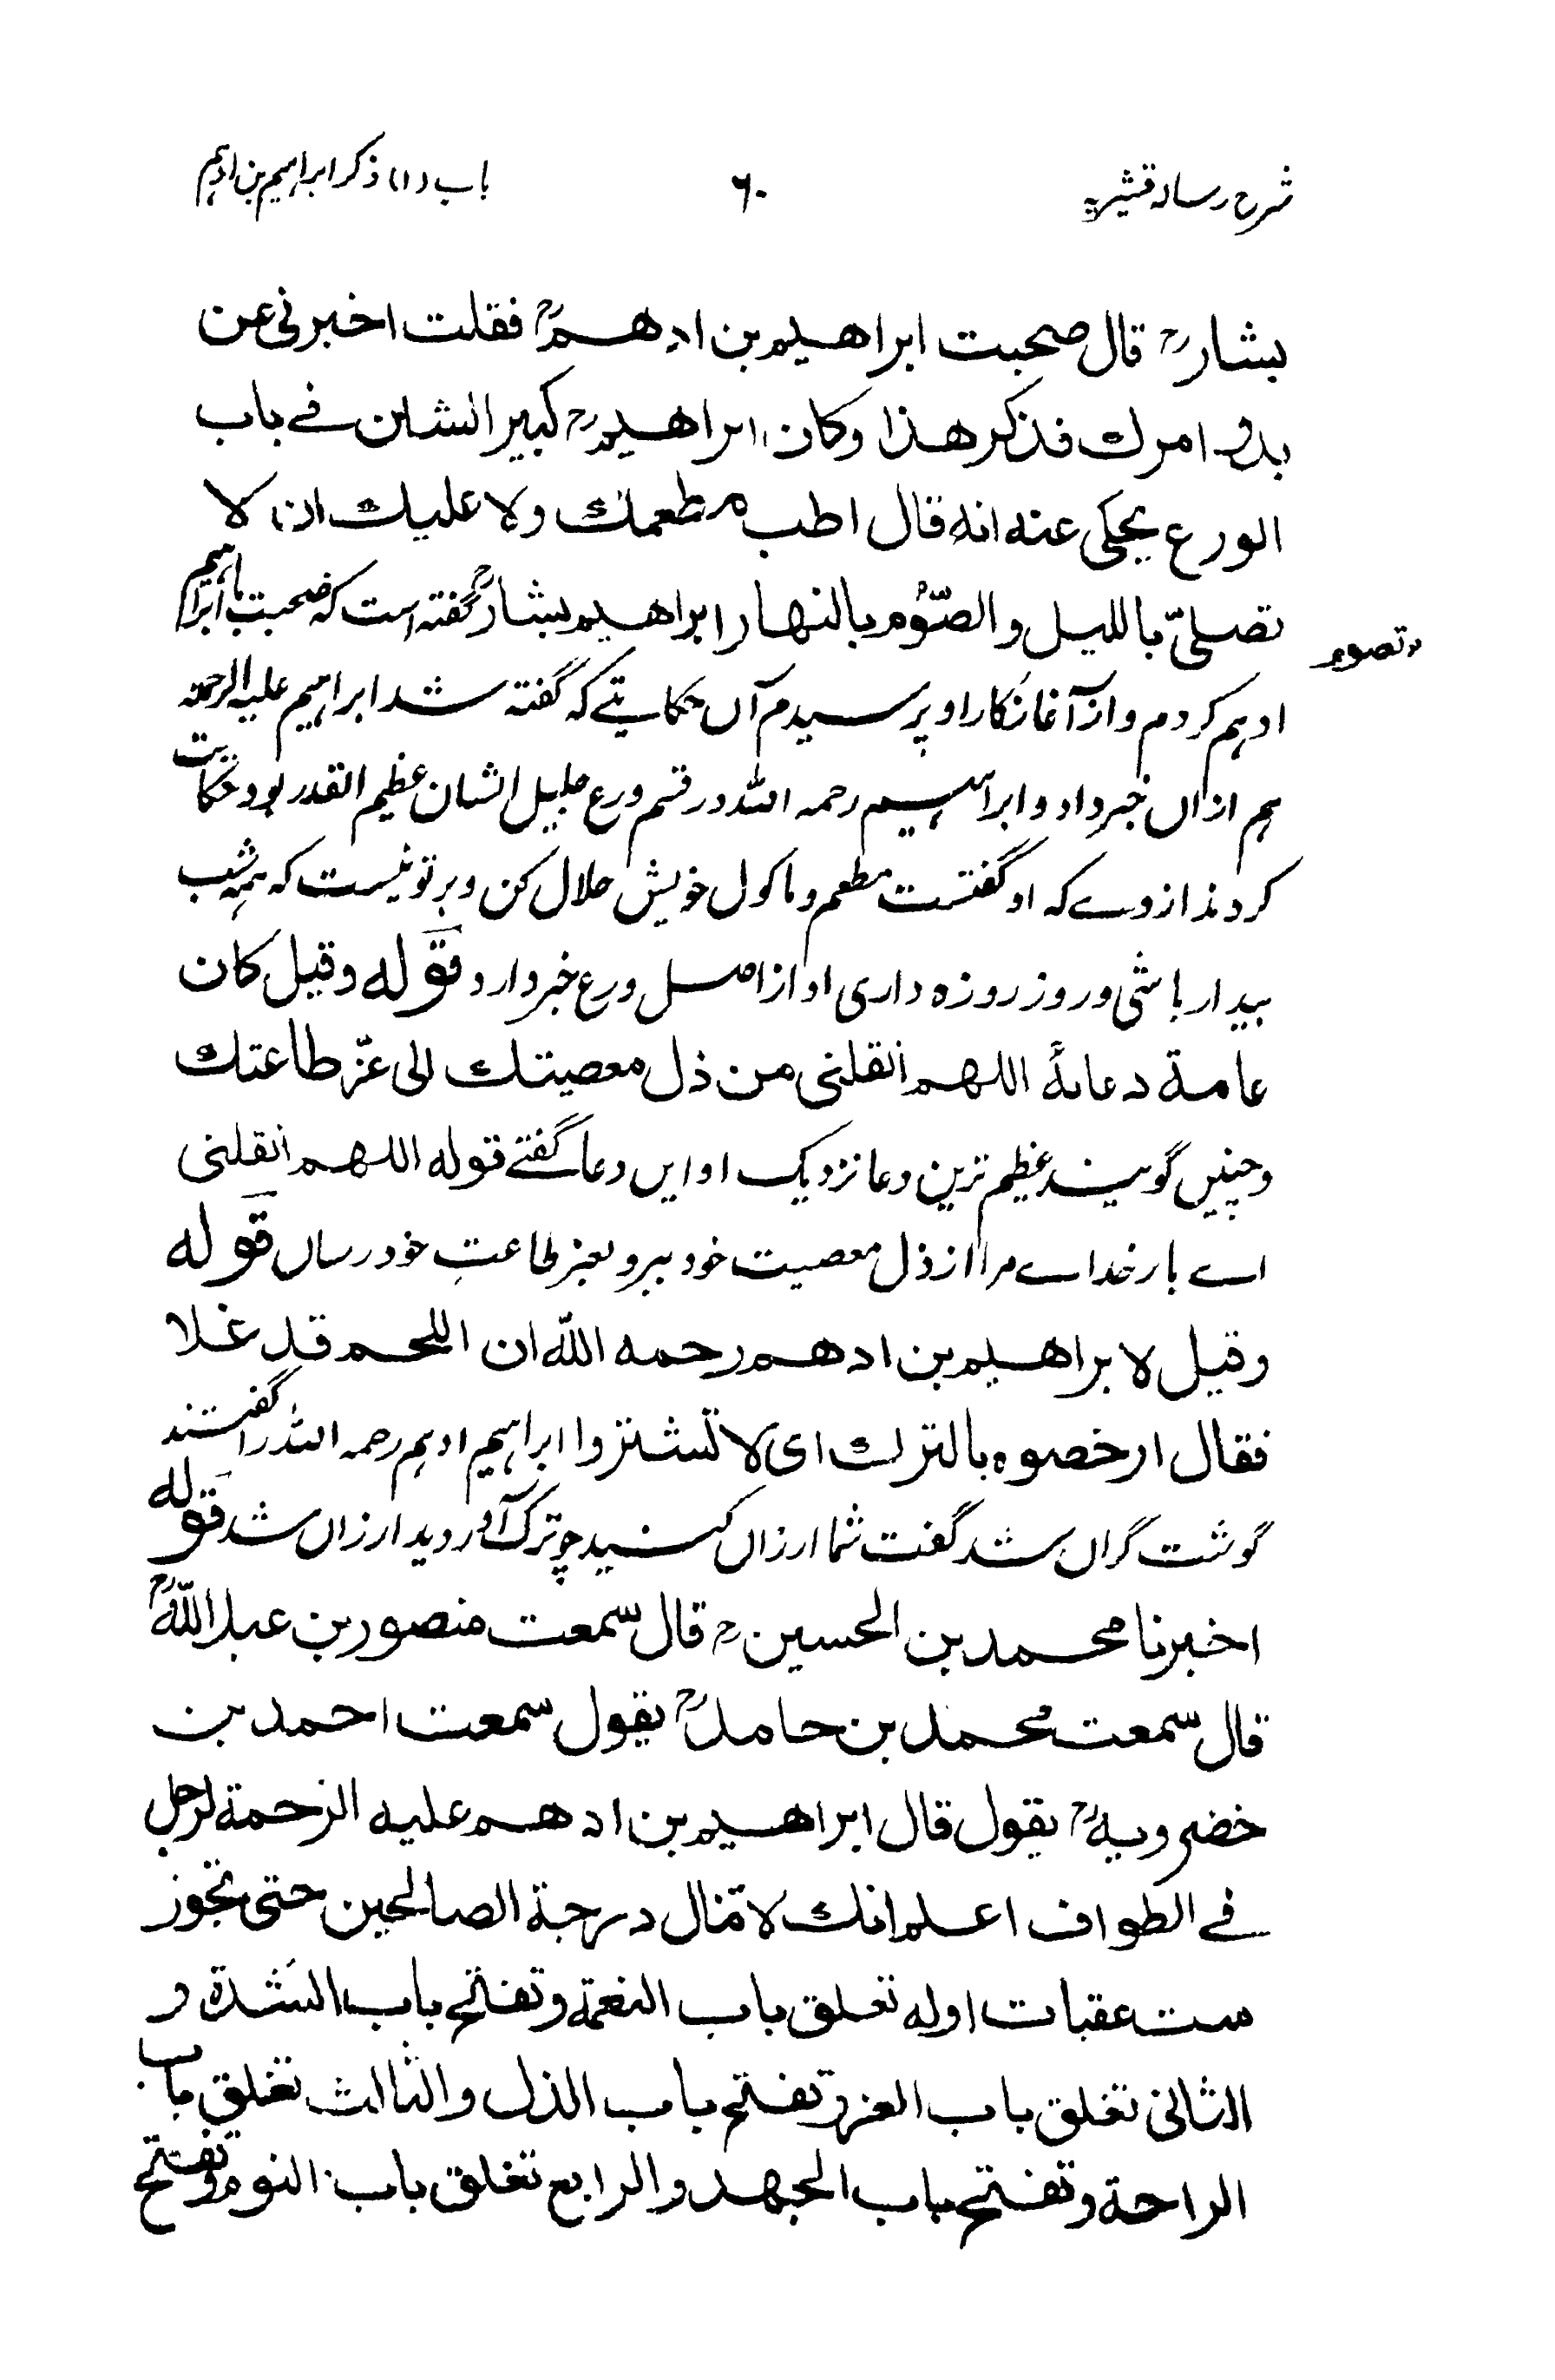 شرح رسالہ قشیریہ ٦٠ باب (١) ذکر ابراہیم بن ادہم
بشارؒ قال صحبت ابراهيم بن ادهمؒ فقلت اخبرنى عن
بدو امرك فذكر هذا وكان ابراهيمؒ كبير الشان فے باب
الورع يحكى عنه انه قال اطب مطعمك ولا عليك ان لا
تصلىّ بالليل والصّوم بالنهار ابراهيم بشارؒ گفتہ است کہ صحبت با ابراہیم
وتصوم
ادہم کردم و از آغاز کار او پرسیدم آں حکایتے کہ گفتہ شد ابراہیم علیہ الرحمۃ
ہم ازاں خبر داد و ابراہیم رحمہ اللہ در قسم ورع جلیل الشان عظیم القدر بود حکایت
کردند از وے کہ او گفتست مطعم و ماکول خویش حلال کن و بر تو نیست کہ ہمہ شب
بیدار باشی و روز روزہ داری او از اصل ورع خبر دارد قوله وقيل كان
عامة دعائه اللهم انقلنى من ذل معصيتك الى عزّ طاعتك
و چنیں گویند عظیم ترین دعا نزدیک او ایں دعا گفتے قوله اللهم انقلنى
اے بار خداے مرا از ذل معصیت خود ببر و بعز طاعتِ خود رساں قوله
وقيل لابراهيم بن ادهم رحمه الله ان اللحم قد غلا
فقال ارخصوه بالترك اى لا تشتروا ابراہیم ادہم رحمہ اللہ را گفتند
گوشت گراں شد گفت شما ارزاں کنید چو ترک آوردید ارزاں شد قوله
اخبرنا محمد بن الحسينؒ قال سمعت منصور بن عبد اللهؒ
قال سمعت محمد بن حامدؒ يقول سمعت احمد بن
خضرويهؒ يقول قال ابراهيم بن ادهم عليه الرحمة لرجل
فے الطواف اعلم انك لا تنال درجة الصالحين حتى تجوز
ست عقبات اوله تغلق باب النعمة وتفتح باب الشدة و
الثانى تغلق باب العز وتفتح باب الذل والثالث تغلق باب
الراحة وتفتح باب الجهد والرابع تغلق باب النوم وتفتح